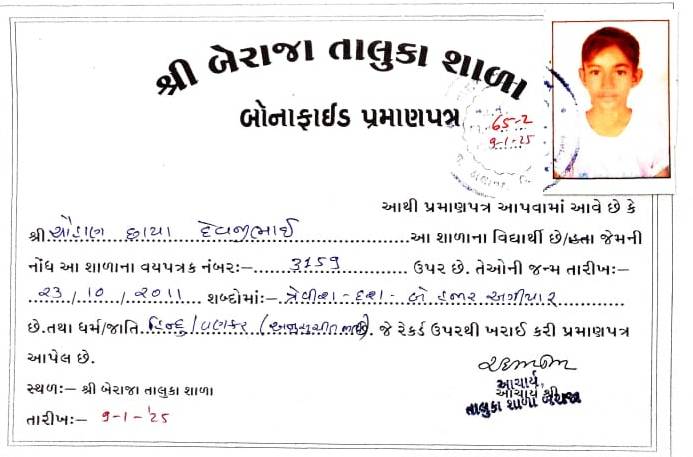 શ્રી બેરાજા તાલુકા શાળા
બોનાફાઈડ પ્રમાણપત્ર
65-2
9-1-25
આથી પ્રમાણપત્ર આપવામાં આવે છે કે
શ્રી ચૌહાણ છાયા દેવજીભાઈ આ શાળાના વિદ્યાર્થી છે/હતા જેમની
નોંધ આ શાળાના વયપત્રક નંબર:– 3759 ઉપર છે. તેઓની જન્મ તારીખ:–
23/10/2011 શબ્દોમાં:– ત્રેવીશ-દશ-બે હજાર અગીયાર
છે.તથા ધર્મ/જાતિ હિન્દુ/વણકર (અનુસુચીત જાતી). જે રેકર્ડ ઉપરથી ખરાઈ કરી પ્રમાણપત્ર
આપેલ છે.
સ્થળ:– શ્રી બેરાજા તાલુકા શાળા
તારીખ:– 9-1-'25
આચાર્ય,
આચાર્ય શ્રી
તાલુકા શાળા બેરાજા